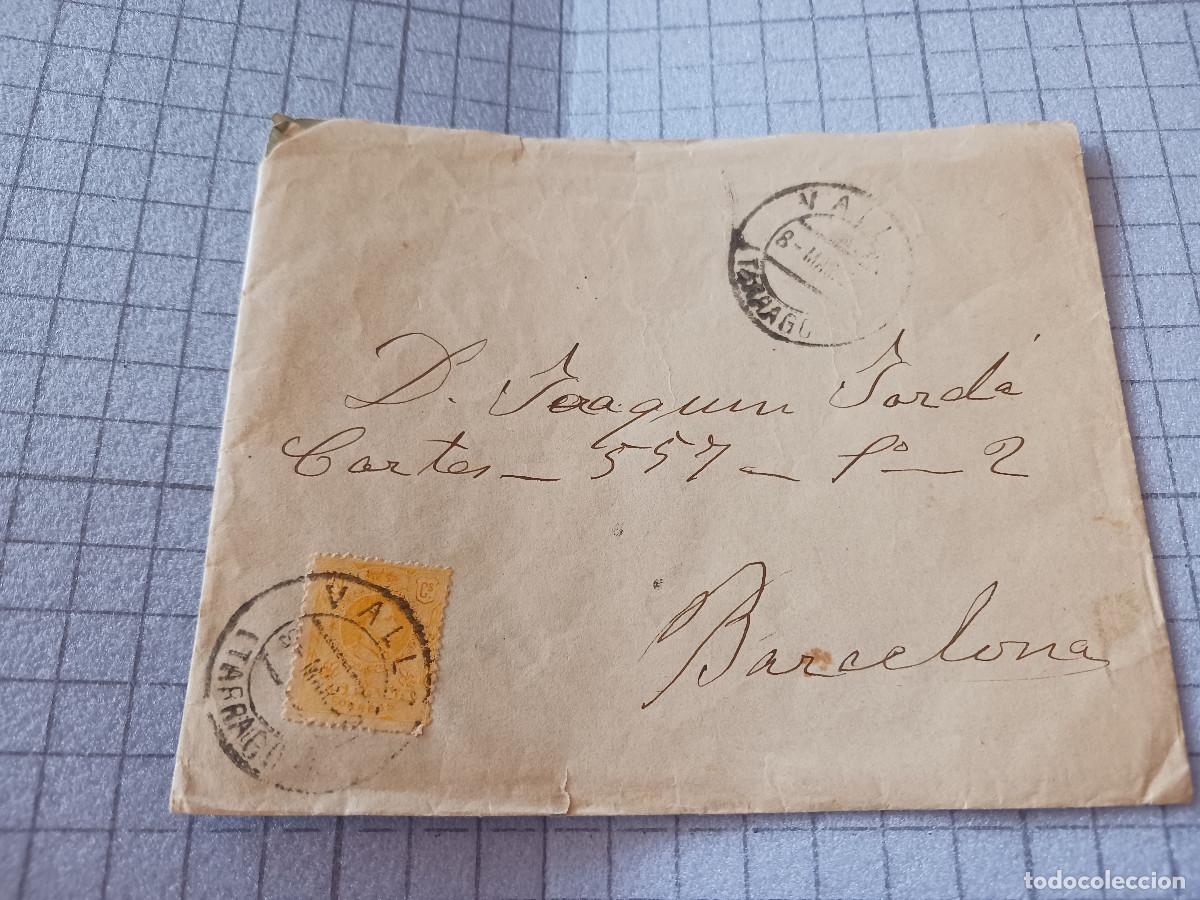 VALL
8-MAR
(TARRAGO
D. Joaquim Jordá
Cortes - 557 - 1º - 2
Cs
VALLS
8-MAR
(TARRAGO
Barcelona
todocoleccion